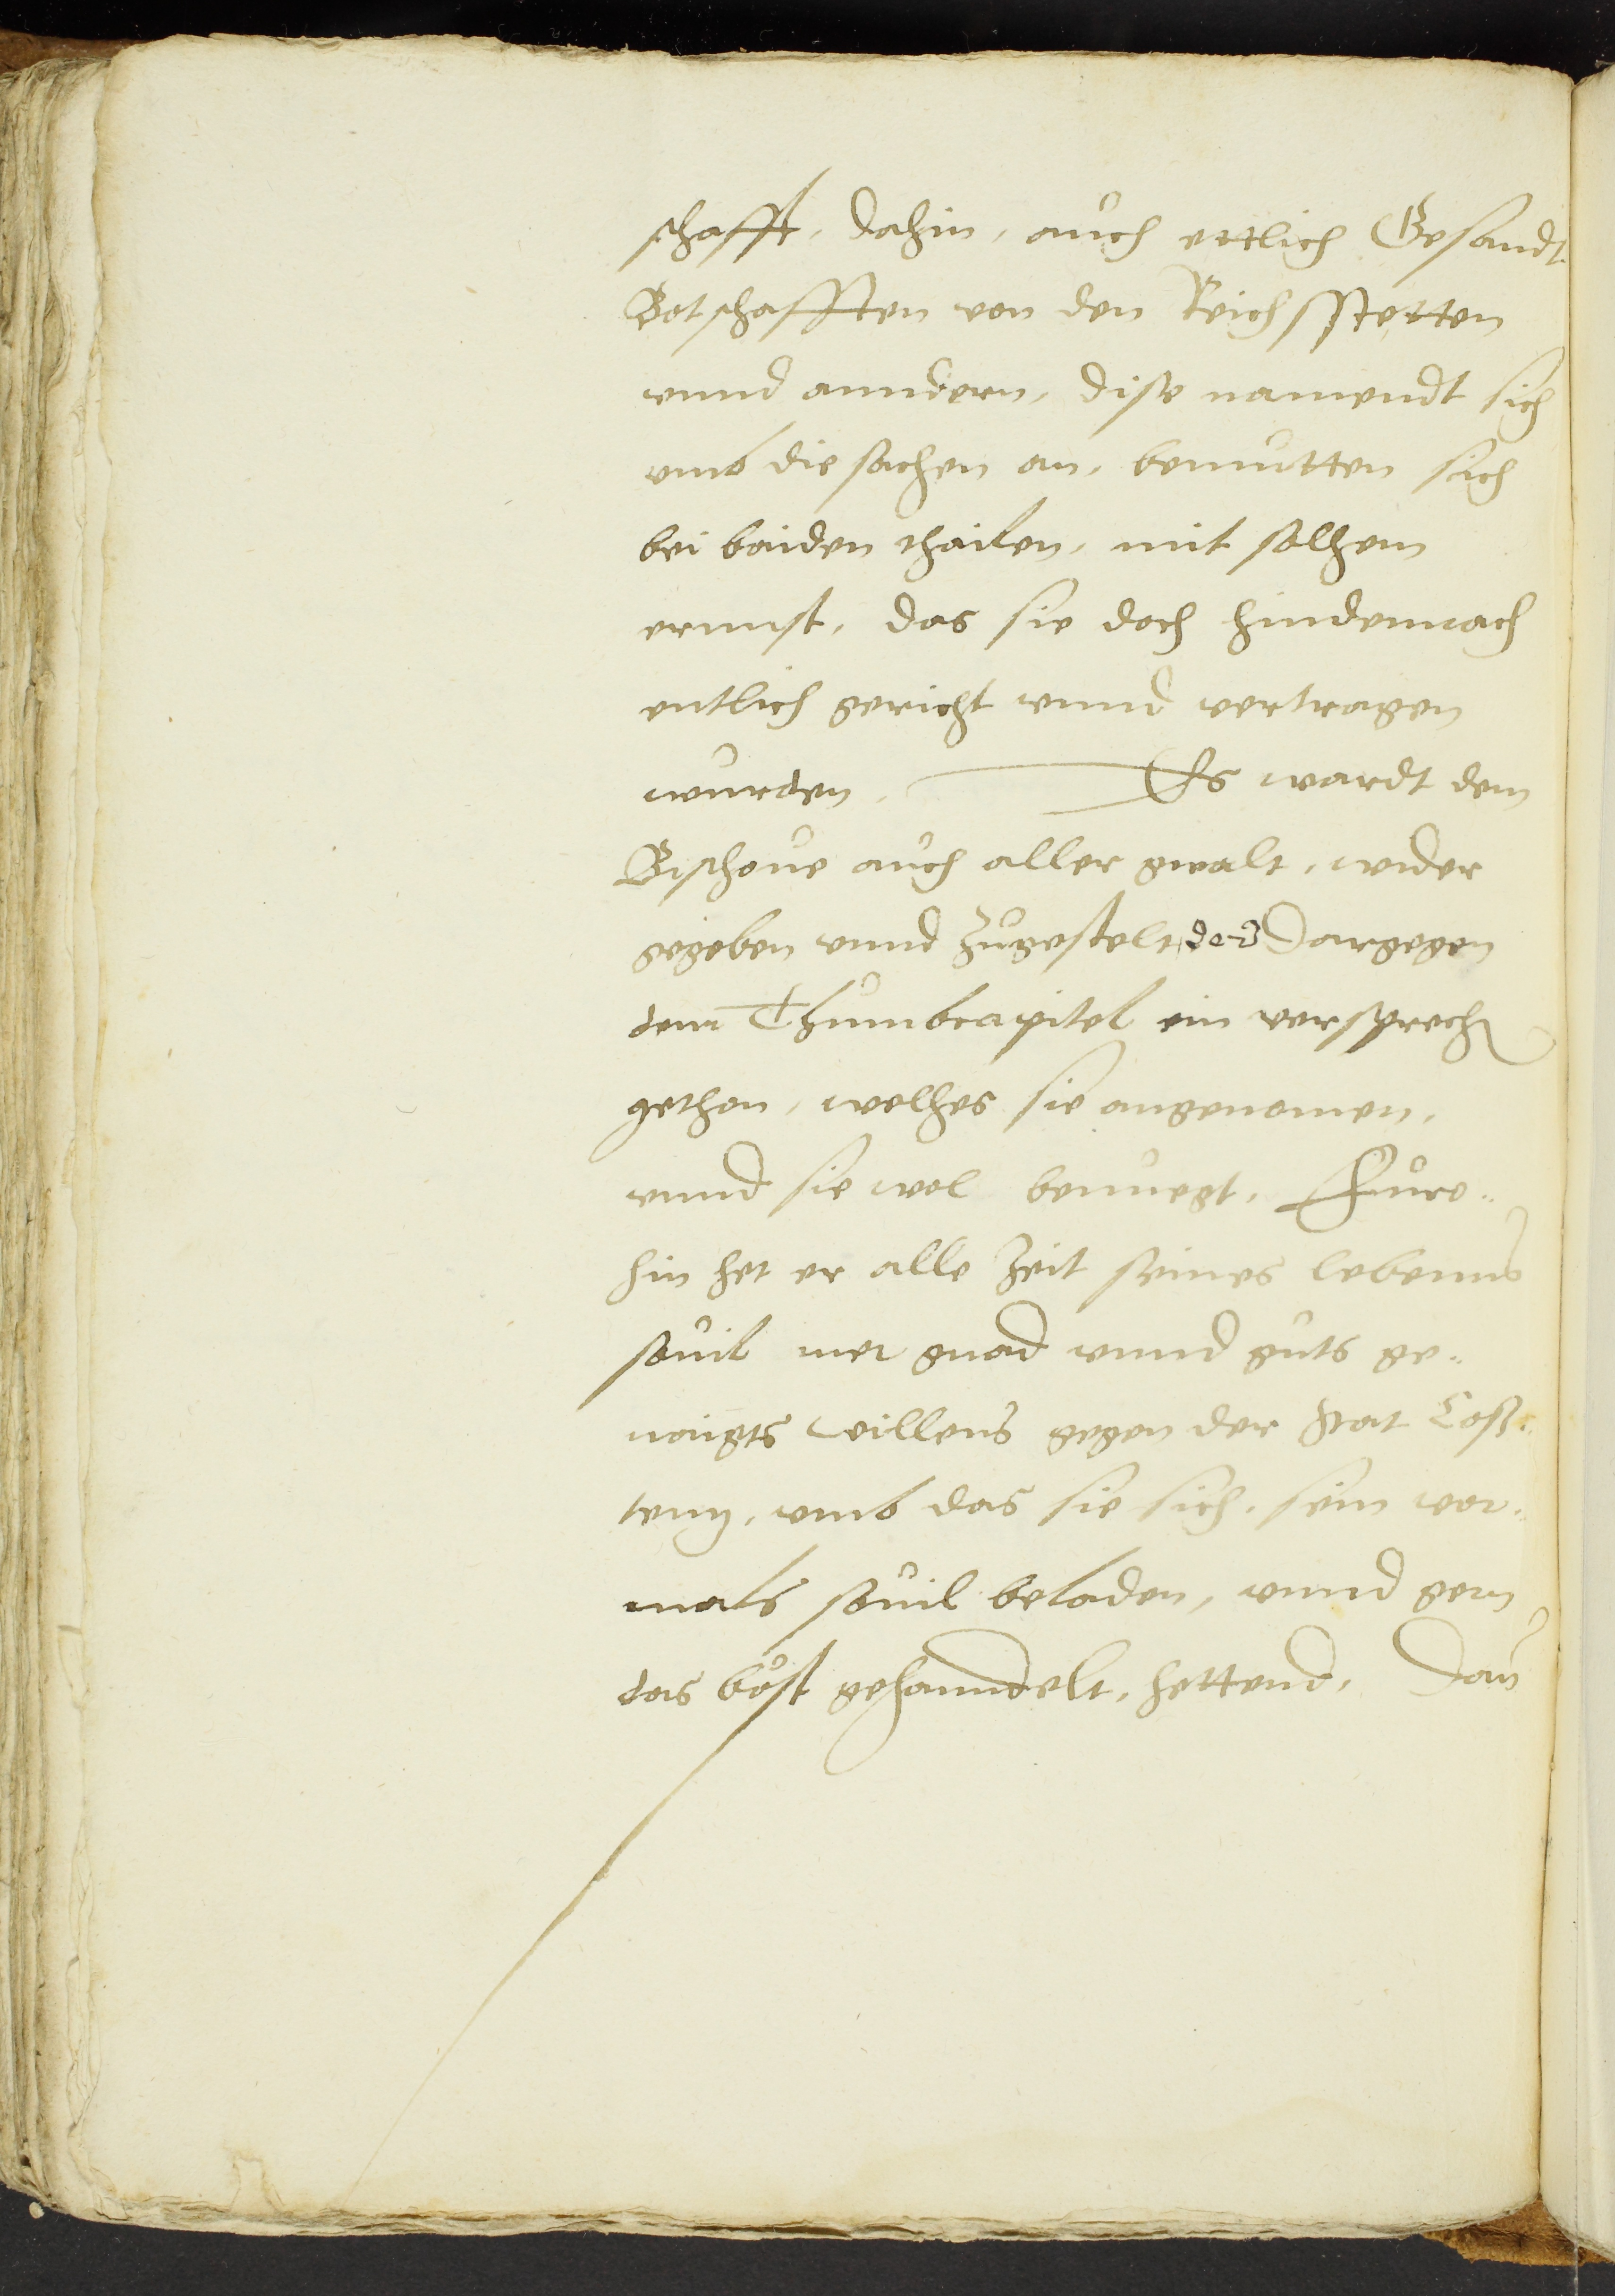 schafft, dahin, auch ettlich Gesandt
Botschafften von den Reichsstetten
vnnd anndern, dise namendt sich
vmb die sachen an, bemutten sich
bei baiden thailen, mit solhem
ernnst, das sie doch hindennach
entlich gericht vnnd vertragen
wurden, Es wardt dem
Bischoue auch aller gwalt, wider
gegeben vnnd zugestelt, der Dargegen
dem Thumbcapitel ein versprech
gethon, welhes sie angenomen,
vnnd sie wol benuegt, Furo¬
hin het er alle Zeit seines lebenns
souil mer gnad vnnd guts ge¬
naigts willens gegen der Stat Cosz¬
tentz, vmb das sie sich, sein vor¬
mals souil beladen, vnnd gern
das böst gehanndelt, hettend, Dan